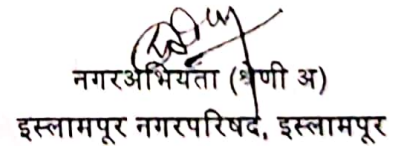 नगरअभियंता (श्रेणी अ)
इस्लामपूर नगरपरिषद, इस्लामपूर